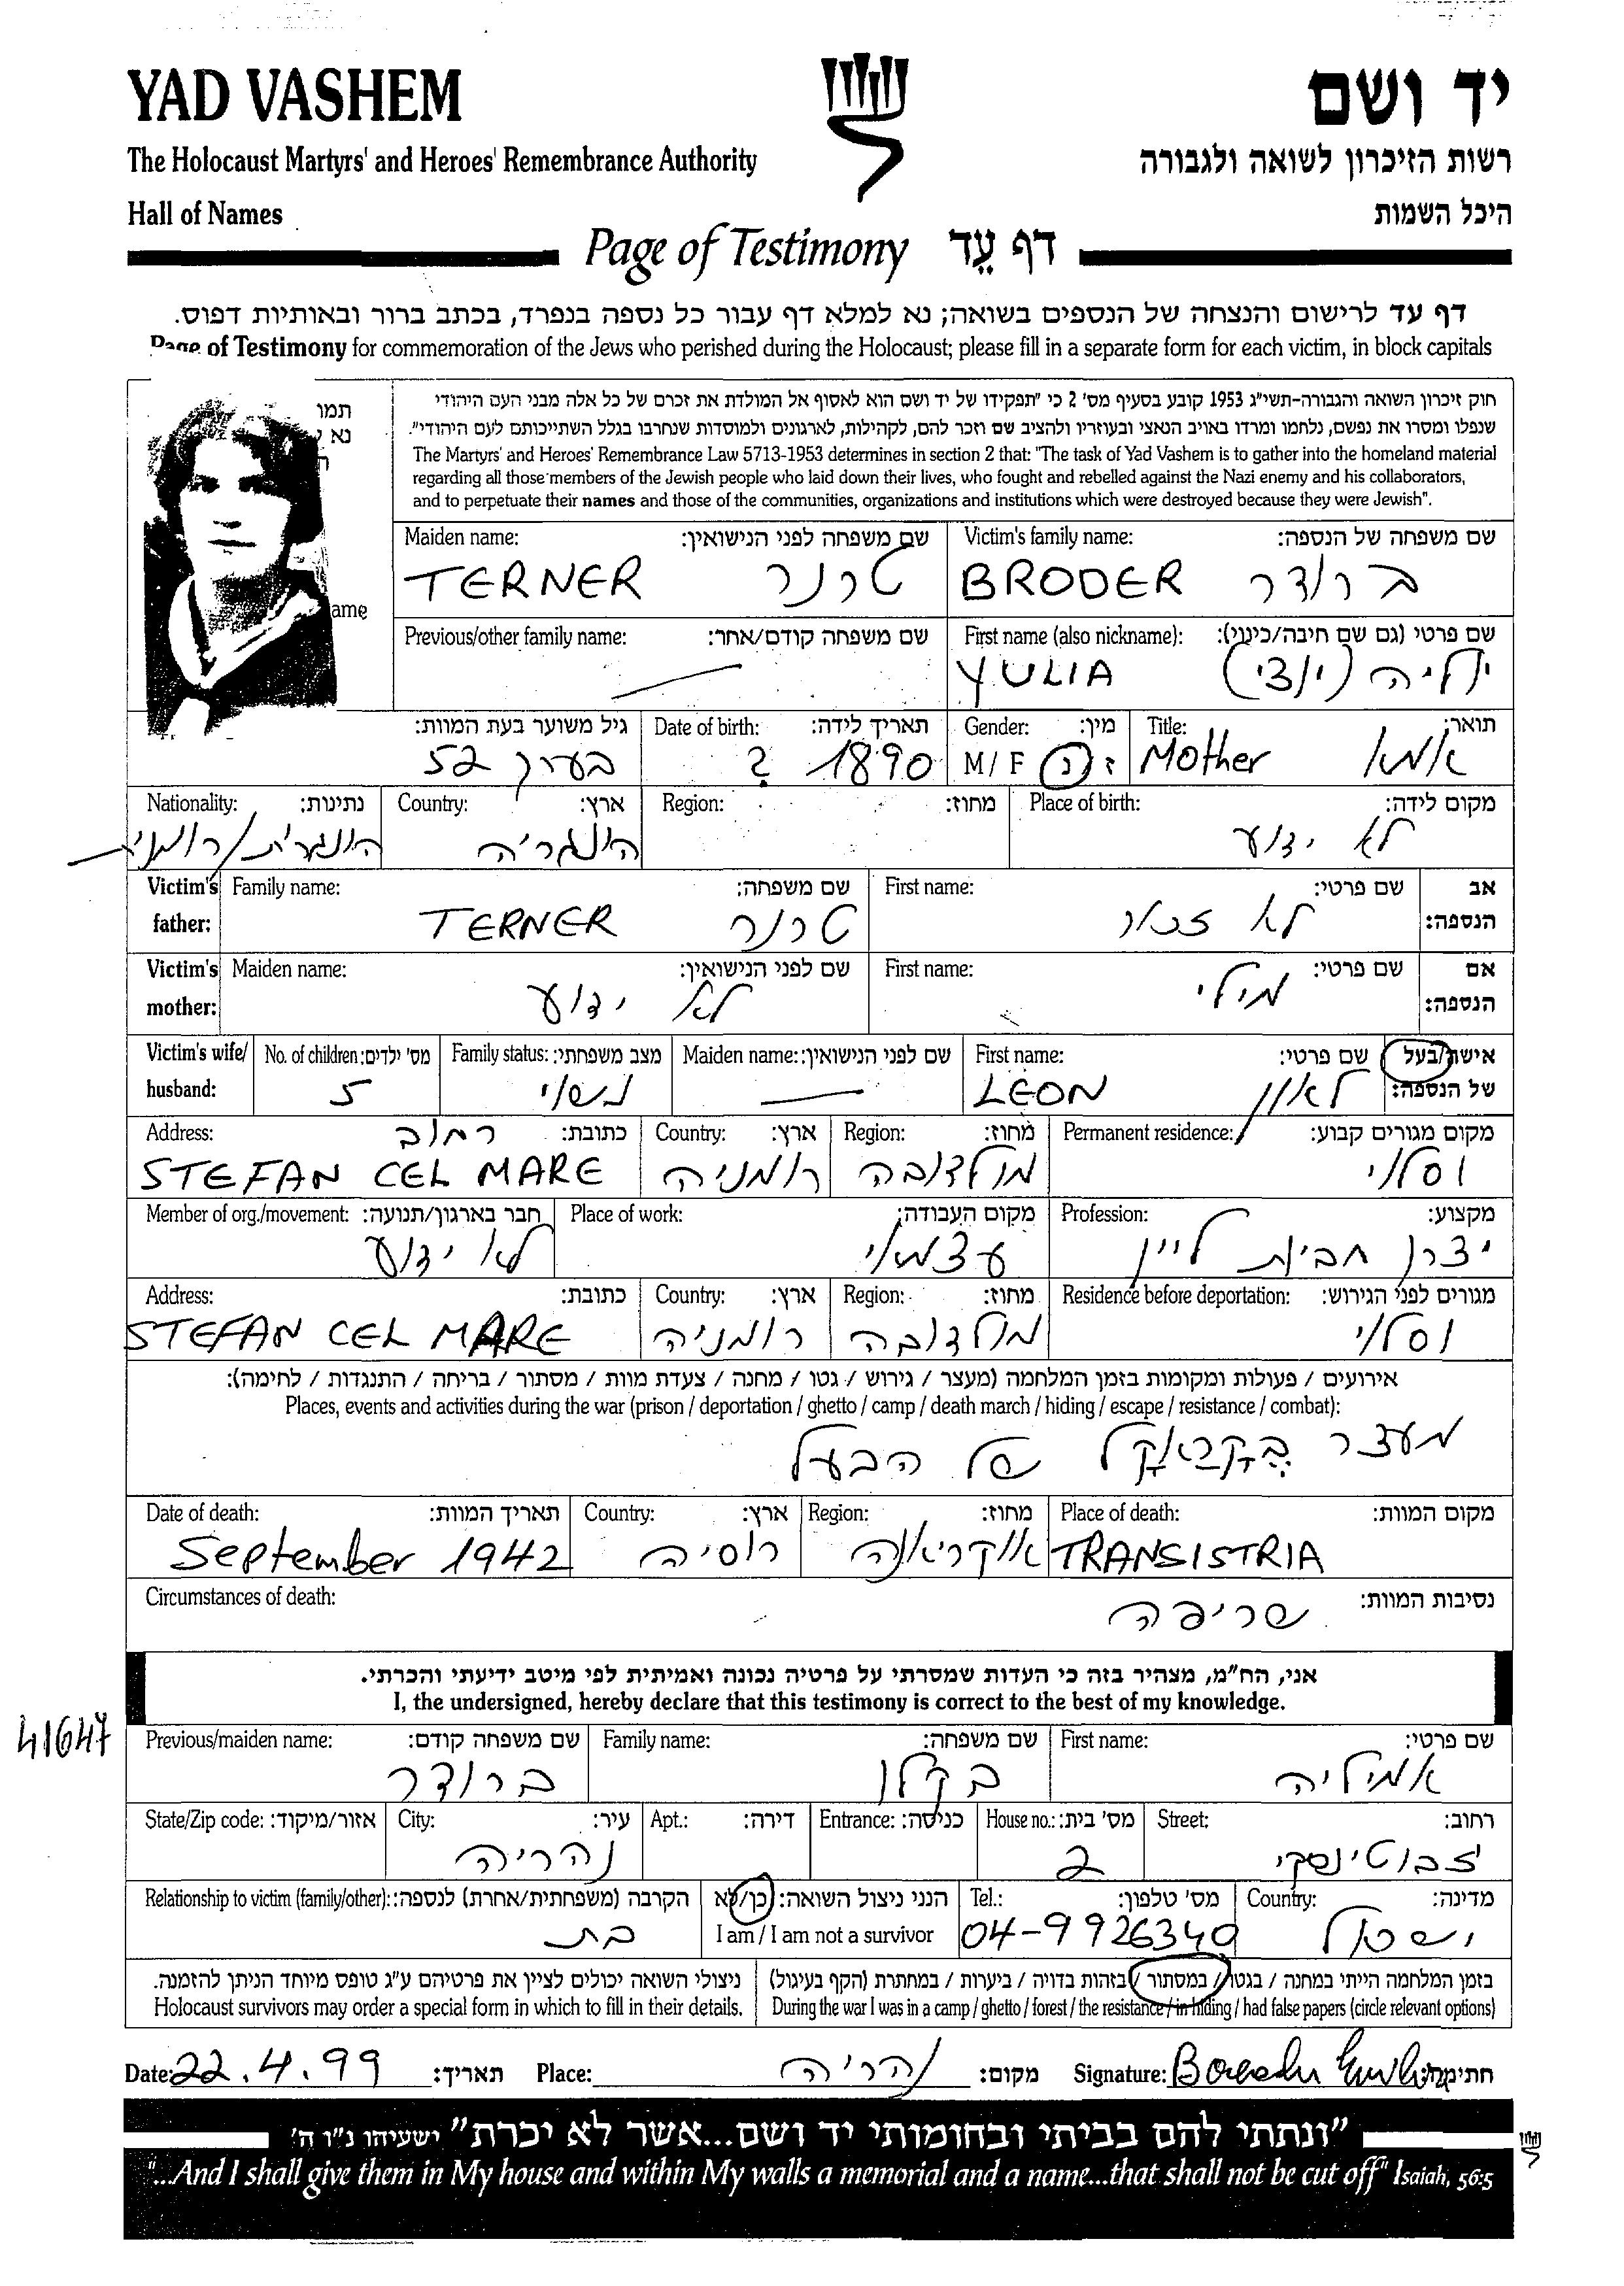 YAD VASHEM
יד ושם
The Holocaust Martyrs' and Heroes' Remembrance Authority
רשות הזיכרון לשואה ולגבורה
Hall of Names
היכל השמות
Page of Testimony דף עֵד
דף עד לרישום והנצחה של הנספים בשואה; נא למלא דף עבור כל נספה בנפרד, בכתב ברור ובאותיות דפוס.
Page of Testimony for commemoration of the Jews who perished during the Holocaust; please fill in a separate form for each victim, in block capitals
תמו
נא
ה
ame
חוק זיכרון השואה והגבורה-תשי"ג 1953 קובע בסעיף מס' 2 כי "תפקידו של יד ושם הוא לאסוף אל המולדת את זכרם של כל אלה מבני העם היהודי
שנפלו ומסרו את נפשם, נלחמו ומרדו באויב הנאצי ובעוזריו ולהציב שם וזכר להם, לקהילות, לארגונים ולמוסדות שנחרבו בגלל השתייכותם לעם היהודי".
The Martyrs' and Heroes' Remembrance Law 5713-1953 determines in section 2 that: "The task of Yad Vashem is to gather into the homeland material
regarding all those members of the Jewish people who laid down their lives, who fought and rebelled against the Nazi enemy and his collaborators,
and to perpetuate their names and those of the communities, organizations and institutions which were destroyed because they were Jewish".
Victim's family name: שם משפחה של הנספה:
BRODER ברודר
Maiden name: שם משפחה לפני הנישואין:
TERNER טרנר
First name (also nickname): שם פרטי (גם שם חיבה/כינוי):
YULIA יוליה (ינצי)
Previous/other family name: שם משפחה קודם/אחר:
Title: תואר:
Mother אמא
Gender: מין:
M / F ז/נ
Date of birth: תאריך לידה:
1890 ?
גיל משוער בעת המוות:
בערך 52
Place of birth: מקום לידה:
לא ידוע
Region: מחוז:
Country: ארץ:
הונגריה
Nationality: נתינות:
הונגרית/רומני
Victim's father: אב הנספה:
First name: שם פרטי:
לא זכור
Family name: שם משפחה:
TERNER טרנר
Victim's mother: אם הנספה:
First name: שם פרטי:
מילי
Maiden name: שם לפני הנישואין:
לא ידוע
Victim's wife/husband: אישה/בעל של הנספה:
First name: שם פרטי:
LEON לאון
Maiden name: שם לפני הנישואין:
Family status: מצב משפחתי:
נשוי
No. of children: מס' ילדים:
5
Permanent residence: מקום מגורים קבוע:
וסלוי
Region: מחוז:
מולדובה
Country: ארץ:
רומניה
Address: כתובת:
רחוב
STEFAN CEL MARE
Profession: מקצוע:
יצרן חביות ליין
Place of work: מקום העבודה:
עצמאי
Member of org./movement: חבר בארגון/תנועה:
לא ידוע
Residence before deportation: מגורים לפני הגירוש:
וסלוי
Region: מחוז:
מולדובה
Country: ארץ:
רומניה
Address: כתובת:
STEFAN CEL MARE
אירועים / פעולות ומקומות בזמן המלחמה (מעצר / גירוש / גטו / מחנה / צעדת מוות / מסתור / בריחה / התנגדות / לחימה):
Places, events and activities during the war (prison / deportation / ghetto / camp / death march / hiding / escape / resistance / combat):
מעצר של הבעל
Place of death: מקום המוות:
TRANSISTRIA
Region: מחוז:
אוקריאנה
Country: ארץ:
רוסיה
Date of death: תאריך המוות:
September 1942
Circumstances of death: נסיבות המוות:
שריפה
אני, הח"מ, מצהיר בזה כי העדות שמסרתי על פרטיה נכונה ואמיתית לפי מיטב ידיעתי והכרתי.
I, the undersigned, hereby declare that this testimony is correct to the best of my knowledge.
41647
First name: שם פרטי:
אמיליה
Family name: שם משפחה:
בקלו
Previous/maiden name: שם משפחה קודם:
ברודר
Street: רחוב:
זבוטינסקי
House no.: מס' בית:
2
Entrance: כניסה:
Apt.: דירה:
City: עיר:
נהריה
State/Zip code: אזור/מיקוד:
Country: מדינה:
ישראל
Tel.: מס' טלפון:
04-9926340
הנני ניצול השואה: כן/לא
I am / I am not a survivor
Relationship to victim (family/other): הקרבה (משפחתית/אחרת) לנספה:
בת
בזמן המלחמה הייתי במחנה / בגטו / במסתור / בזהות בדויה / ביערות / במחתרת (הקף בעיגול)
During the war I was in a camp / ghetto / forest / the resistance / in hiding / had false papers (circle relevant options)
ניצולי השואה יכולים לציין את פרטיהם ע"ג טופס מיוחד הניתן להזמנה.
Holocaust survivors may order a special form in which to fill in their details.
Date: 22.4.99 תאריך: Place: נהריה מקום: Signature: חתימה:
"ונתתי להם בביתי ובחומותי יד ושם...אשר לא יכרת" ישעיהו נ"ו ה'
"...And I shall give them in My house and within My walls a memorial and a name...that shall not be cut off" Isaiah, 56:5